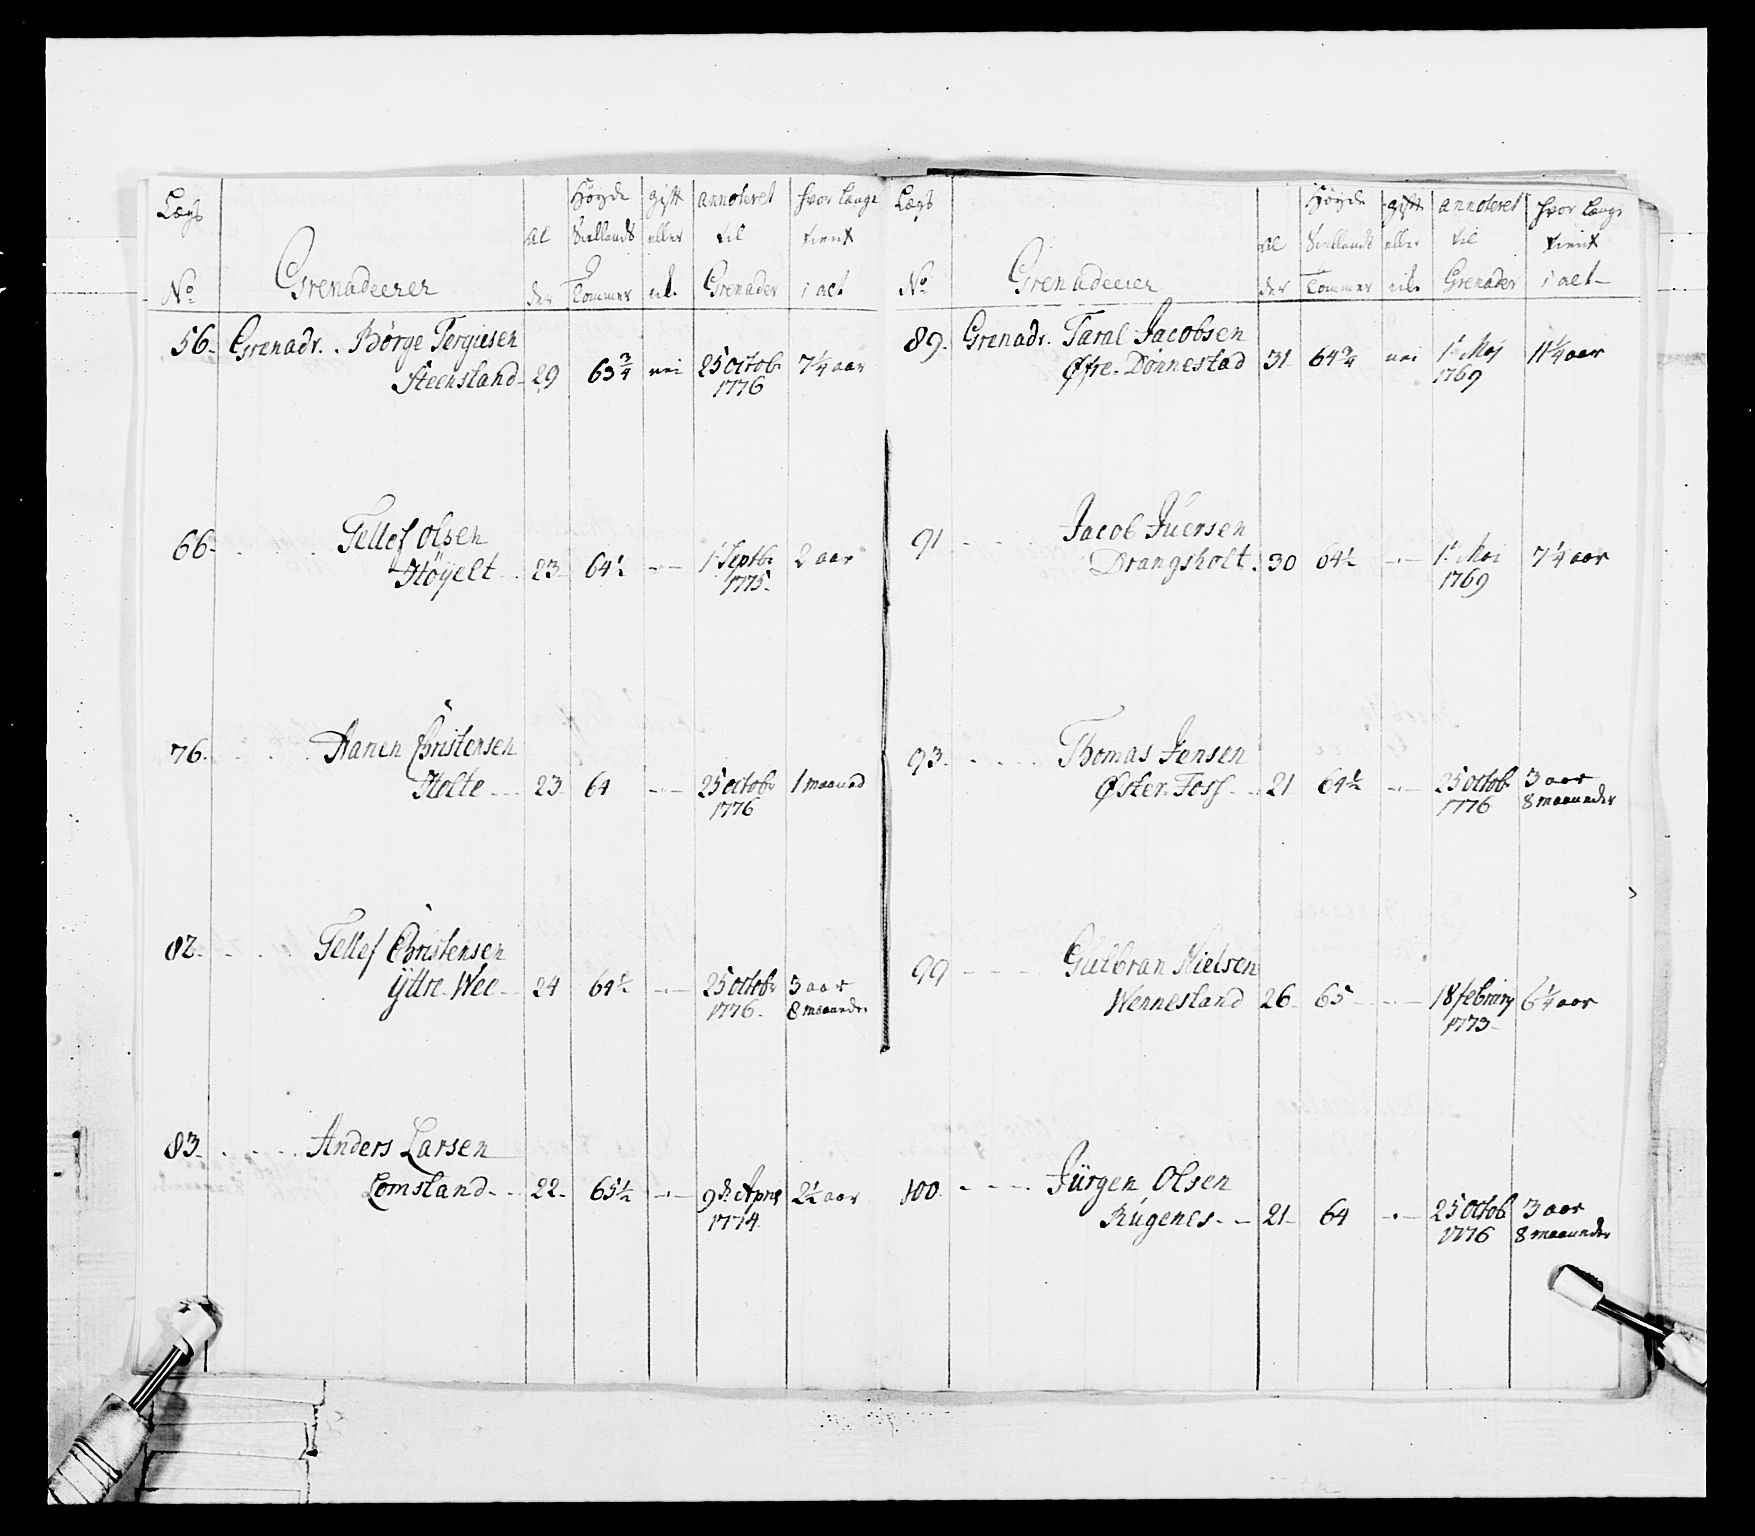 Lægs
No
Grenadeerer
Al
der
Høyde
Siellands
Tommer
gift
eller
annoteret
til
Grenader
hvor længe
tient
i alt
56. Grenadr. Børge Tergiesen
Steensland 29 63¾ nei 25 octob. 7¼ aar
1776
66. Tellef Olsen
Høyelt 23 64½ 1 Septb. 2 aar
1775.
76. Aanen Christensen
Holte 23 64 25 octob. 1 maaned
1776
82. Tellef Christensen
Yttre Wee 24 64½ 25 octob. 3 aar
1776. 8 maaneder
83. Anders Larsen
Lomsland 22. 65½ 9d. April 2½ aar
1774
Lægs
No
Grenadeerer
Al
der
Høyde
Siellands
Tommer
gift
eller
annoteret
til
Grenader
hvor længe
tient
i alt
89. Grenadr. Taral Jacobsen
Øfre Dønnestad 31 64¾ nei 1t. Maj 11¼ aar
1769
91 Jacob Juersen
Drangsholt. 30 64½ 1t. Mai 7¼ aar
1769
93. Thomas Jensen
Øster Foss 21 64½ 25 octob. 3 aar
1776 8 maaneder
99 Gulbran Nielsen
Wennesland 26 65 18 febrary 6¼ aar
1773
100. Jürgen Olsen
Rugenes 21 64 25 octob. 3 aar
1776 8 maaneder